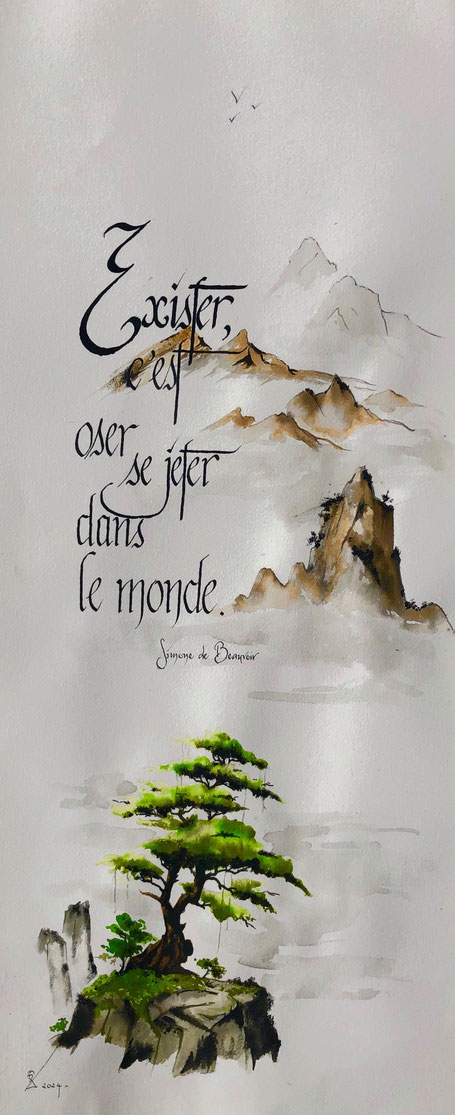 Exister,
c'est
oser
se jeter
dans
le monde.
Simone de Beauvoir
2024-